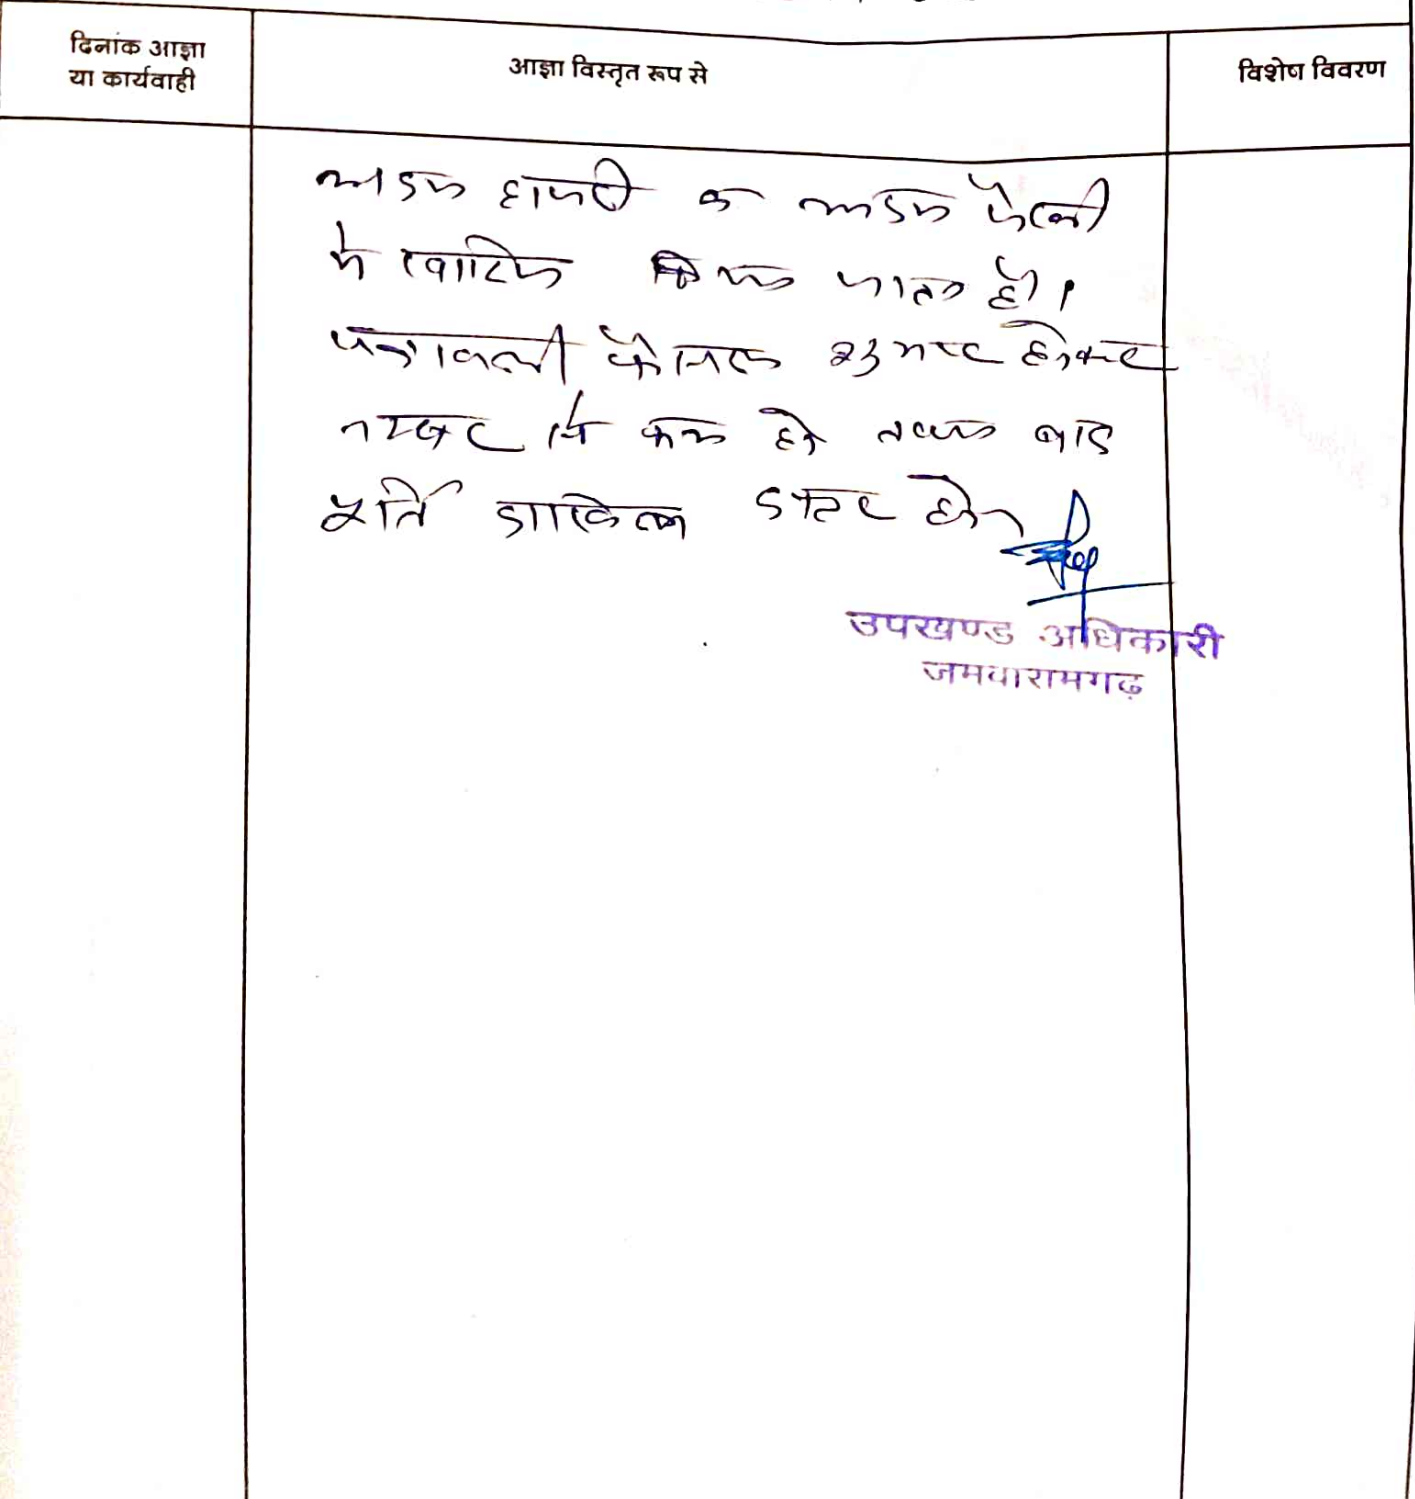 दिनांक आज्ञा
या कार्यवाही
आज्ञा विस्तृत रूप से
विशेष विवरण
अदम हाजरी व अदम पैरवी
मे खारिज किया जाता है।
पत्रावली फैसल शुमार होकर
नम्बर से कम हो बाद
दफ्तर हो
उपखण्ड अधिकारी
जमवारामगढ़